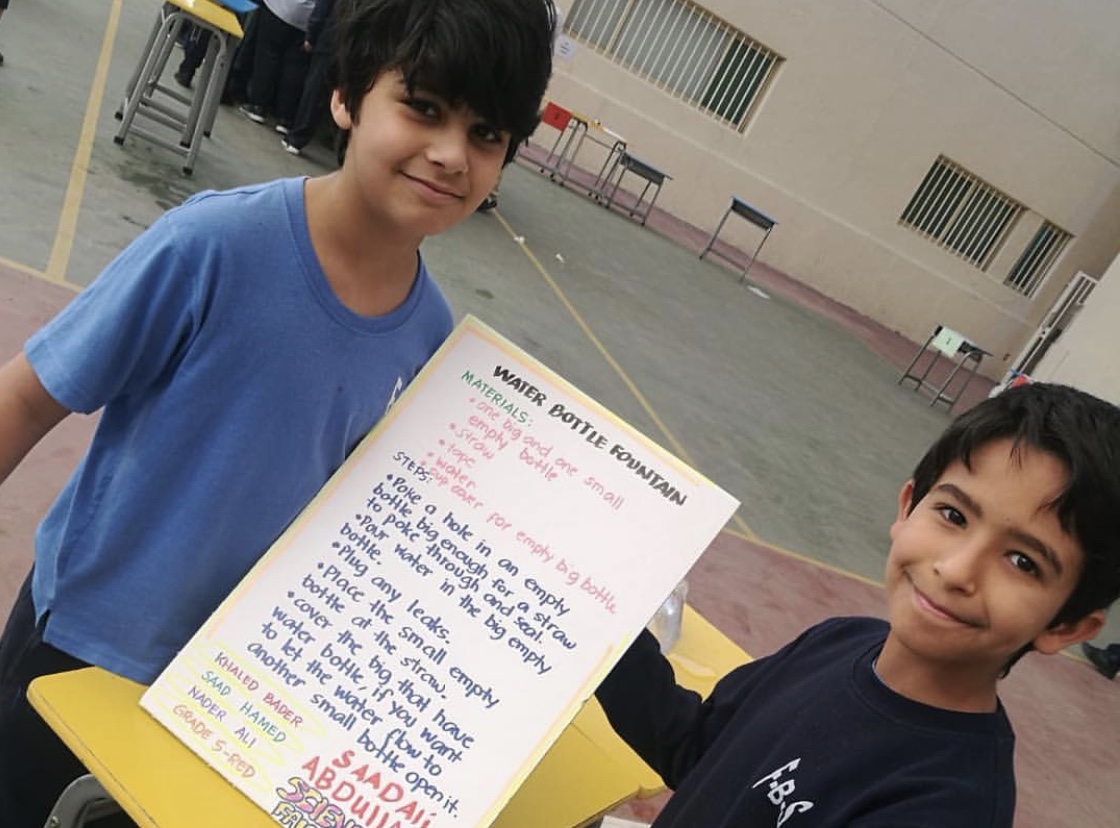 WATER BOTTLE FOUNTAIN
MATERIALS:
• one big and one small
empty bottle
• straw
• tape
• water
• cup cover for empty big bottle
STEPS:
• Poke a hole in an empty
bottle big enough for a straw
to poke through and seal.
• Pour water in the big empty
bottle.
• Plug any leaks.
• Place the small empty
bottle at the straw.
• cover the big that have
water bottle, if you want
to let the water flow to
another small bottle open it.
KHALED BADER
SAAD HAMED
NADER ALI
GRADE 5-RED
SAAD Ali
ABDUllA
F.B.S